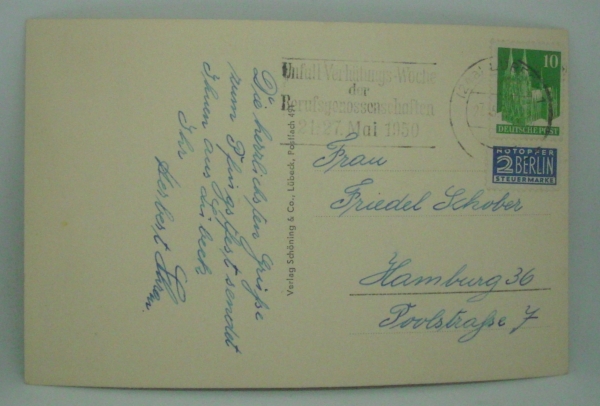 Die herzlichsten Grüße
zum Pfingstfest sendet
Ihnen aus Lübeck
Ihr
Herbert
Verlag Schöning & Co., Lübeck, Postfach 49
Unfall-Verhütungs-Woche
der
Berufsgenossenschaften
21.-27. Mai 1950
10
DEUTSCHE POST
NOTOPFER
2 BERLIN
STEUERMARKE
Frau
Friedel Schober
Hamburg 36
Poolstraße 7